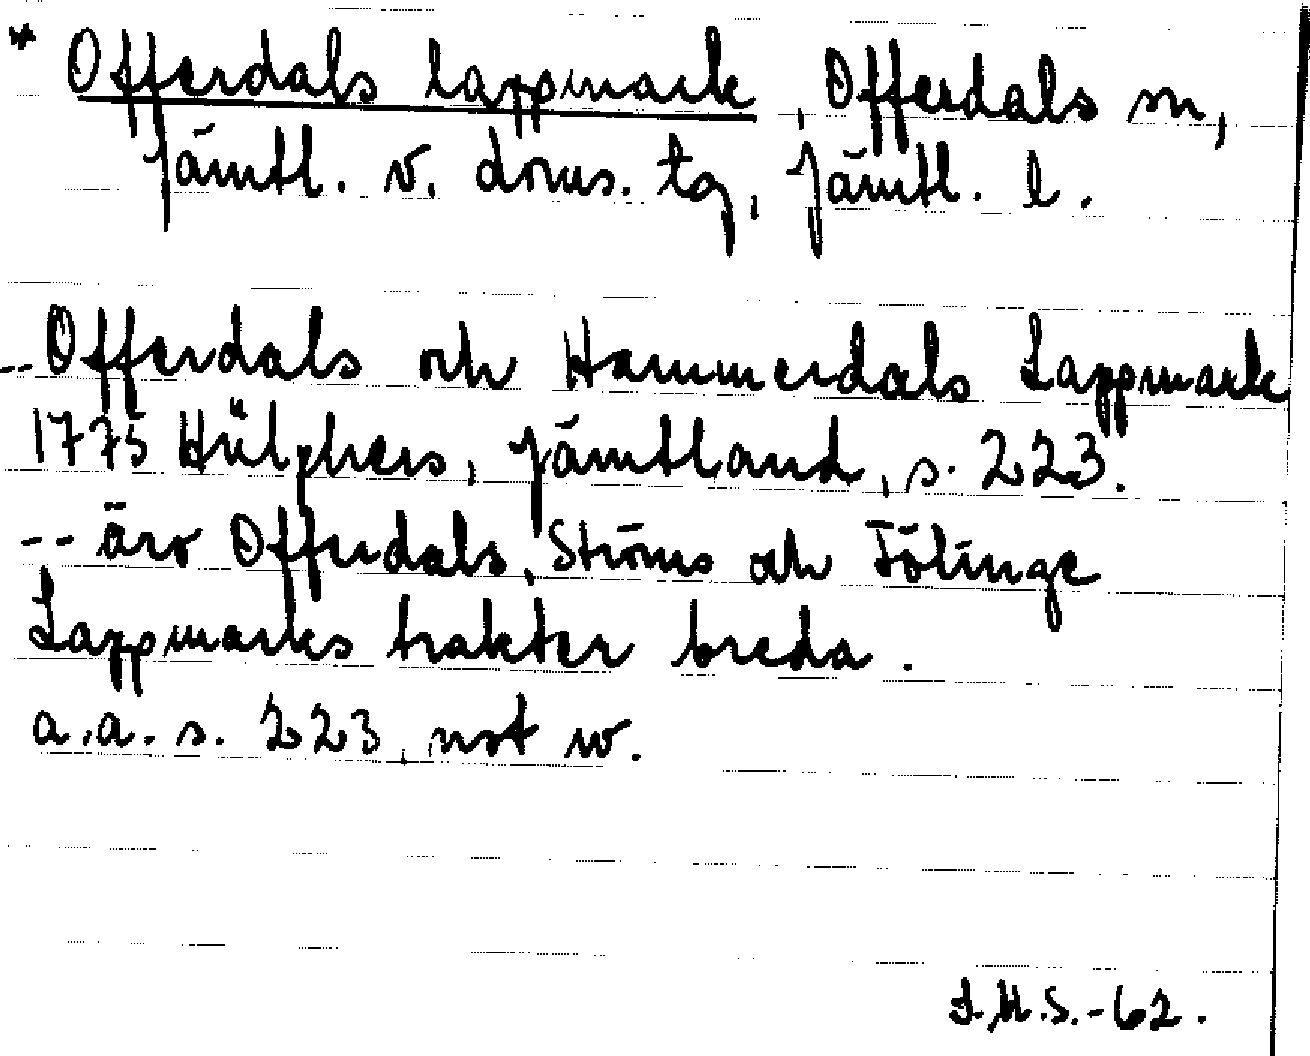 * Offerdals lappmark, Offerdals sn,
Jämtl. v. doms. tg, Jämtl. l.
--Offerdals och Hammerdals Lappmark
1775 Hülphers, Jämtland, s. 223.
-- äro Offerdals, Ströms och Fölinge
Lappmarks trakter breda.
a.a. s. 223, not w.
S.-62.